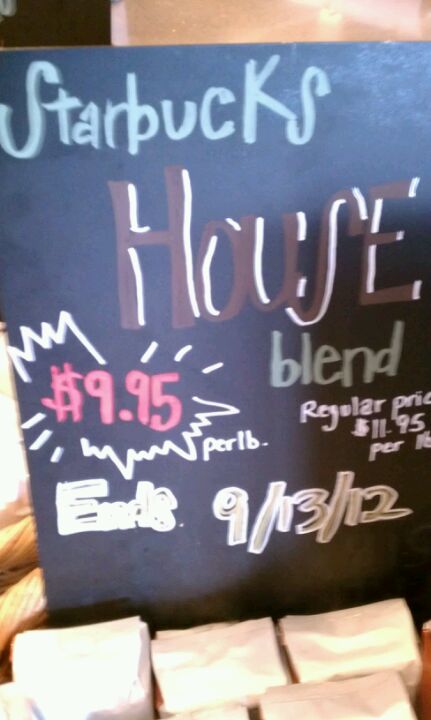 Starbucks
HOUSE
blend
$9.95
per lb.
Regular pric
$11.95
per lb
Ends 9/13/12